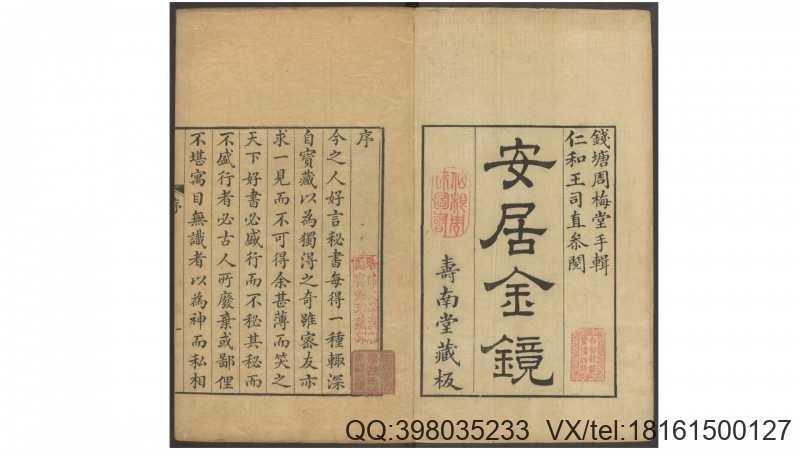 錢塘周梅堂手輯
仁和王司直叅閱
安居金鏡
壽南堂藏板
序
今之人好言秘書每得一種輙深
自寳藏以為獨淂之奇雖密友亦
求一見而不可得余甚薄而笑之
天下好書必盛行而不秘其秘而
不盛行者必古人所廢棄或鄙俚
不堪寓目無識者以為神而私相
序
一
QQ:398035233 VX/tel:18161500127